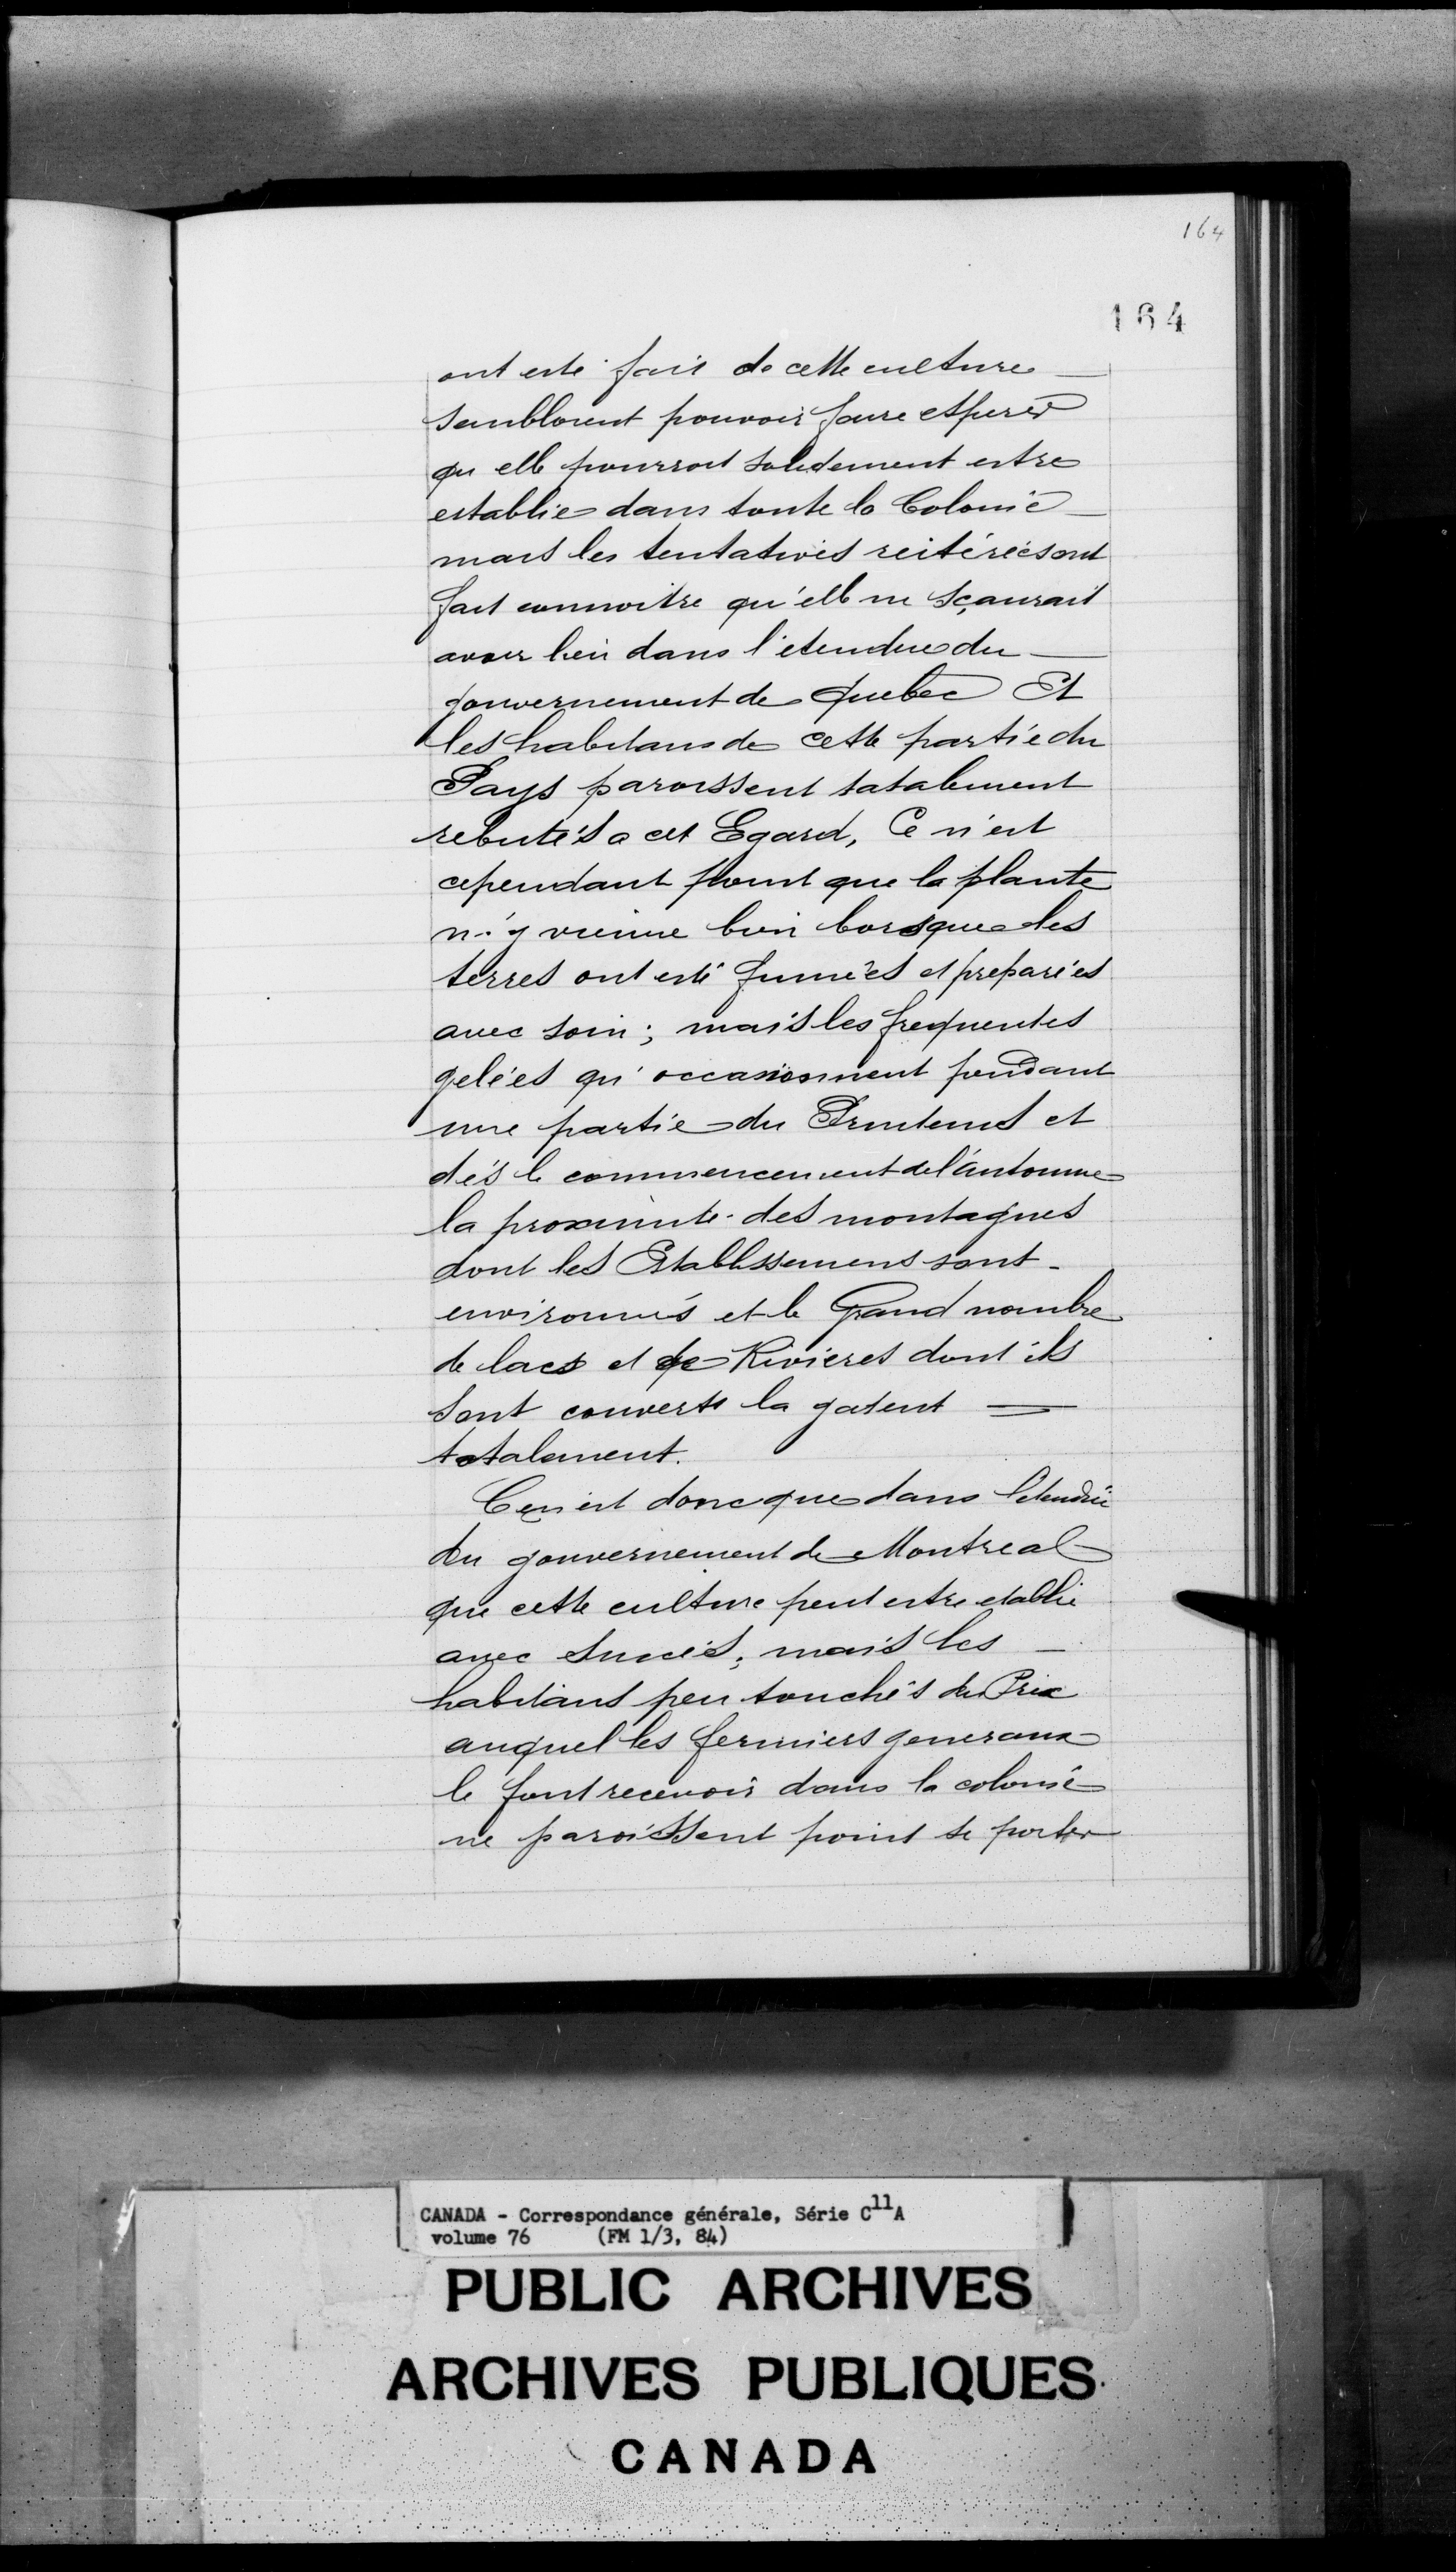 164
164
ont esté fait de cette culture
sembloient pouvoir faire esperer
qu elle pourroit solidement estre
establie dans toute la Colonie
mais les tentatives reitérées ont
fait connoitre qu'elle ne sçaurait
avoir lieu dans l'etendue du
gouvernement de Quebec Et
les habitans de cette partie du
Pays paroissent totalement
rebutés a cet Egard, Ce n'est
cependant point que la plante
n'y vienne bien lorsque les
terres ont esté fumées et preparées
avec soin; mais les frequentes
gelées qu'occasionnent pendant
une partie du Printems et
dés le commencement del'automne
la proximité des montagnes
dont les Etablissemens sont
environnés et le Grand nombre
de lacs et de Rivieres dont ils
sont couverts la gatent
totalement.
Ce n'est donc que dans l'etendüe
du gouvernement de Montreal
que cette culture peut estre etablie
avec succés; mais les
habitans peu touchés du Prix
auquel les fermiers generaux
le font recevoir dans la colonie
ne paroissent point se porter
CANADA - Correspondance générale, Série C11A
volume 76 (FM 1/3, 84)
PUBLIC ARCHIVES
ARCHIVES PUBLIQUES
CANADA